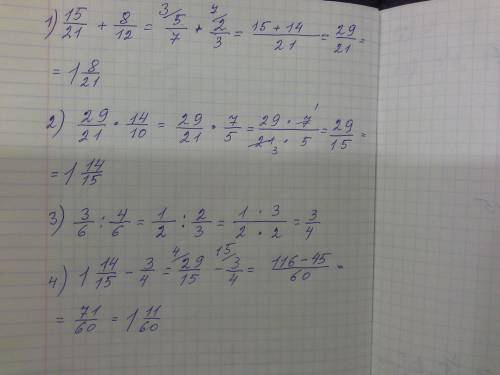 1) 15/21 + 8/12 = ³⁄5/7 + ⁷⁄2/3 = 15 + 14/21 = 29/21 =
= 1 8/21
2) 29/21 · 14/10 = 29/21 · 7/5 = 29 · 7 1/21 3 · 5 = 29/15 =
= 1 14/15
3) 3/6 : 4/6 = 1/2 : 2/3 = 1 · 3/2 · 2 = 3/4
4) 1 14/15 - 3/4 = ⁴⁄29/15 - ¹⁵⁄3/4 = 116 - 45/60 =
= 71/60 = 1 11/60